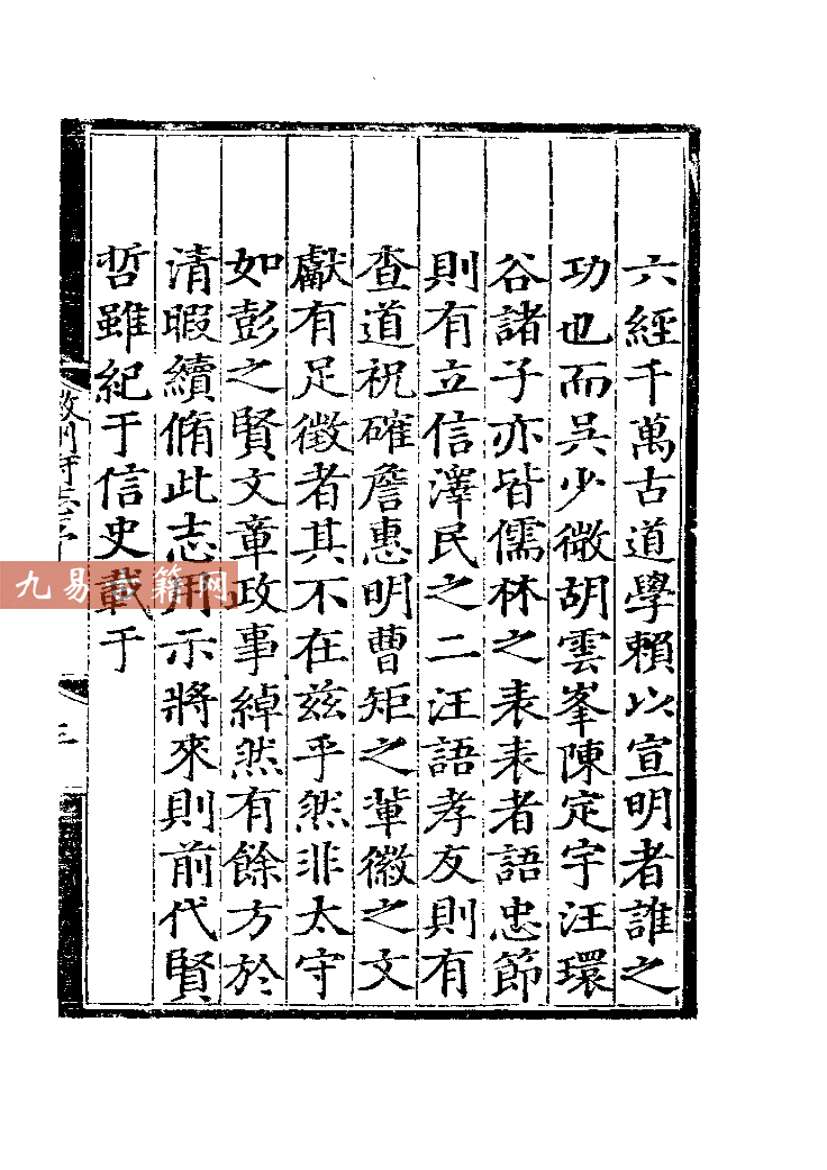 六經千萬古道學賴以宣明者誰之
功也而吳少微胡雲峯陳定宇汪環
谷諸子亦皆儒林之表表者語忠節
則有立信澤民之二汪語孝友則有
查道祝確詹惠明曹矩之軰徽之文
獻有足徵者其不在兹乎然非太守
如彭之賢文章政事綽然有餘方於
清暇續脩此志用示將來則前代賢
哲雖紀于信史載于
九易古籍网
三